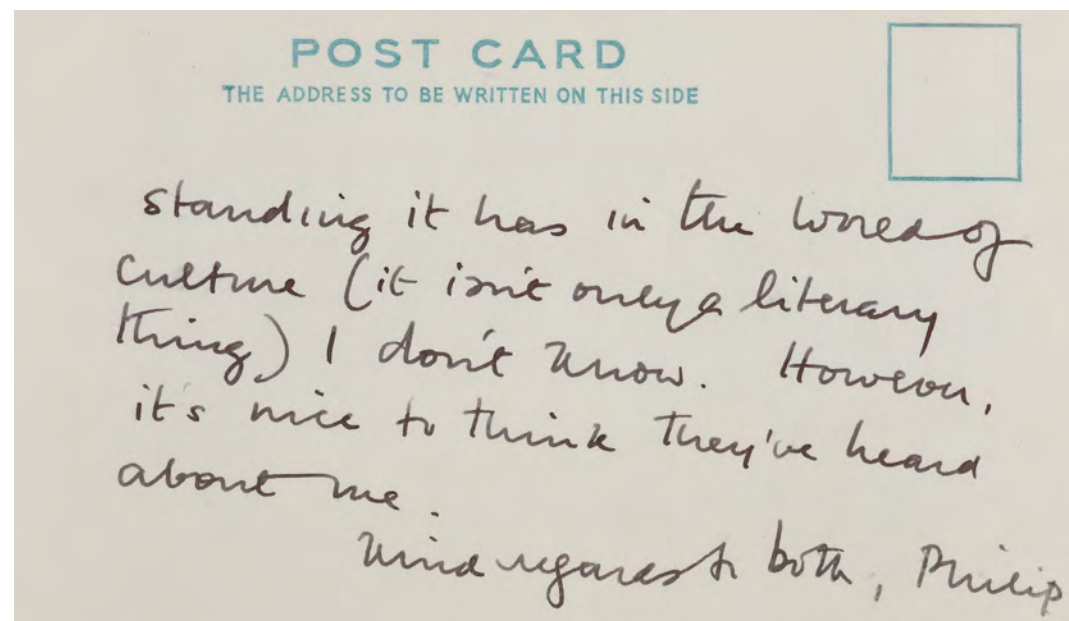 POST CARD
THE ADDRESS TO BE WRITTEN ON THIS SIDE
standing it has in the world of
culture (it isn't only a literary
thing) I don't know. However,
it's nice to think they've heard
about me.
Kind regards to both, Philip